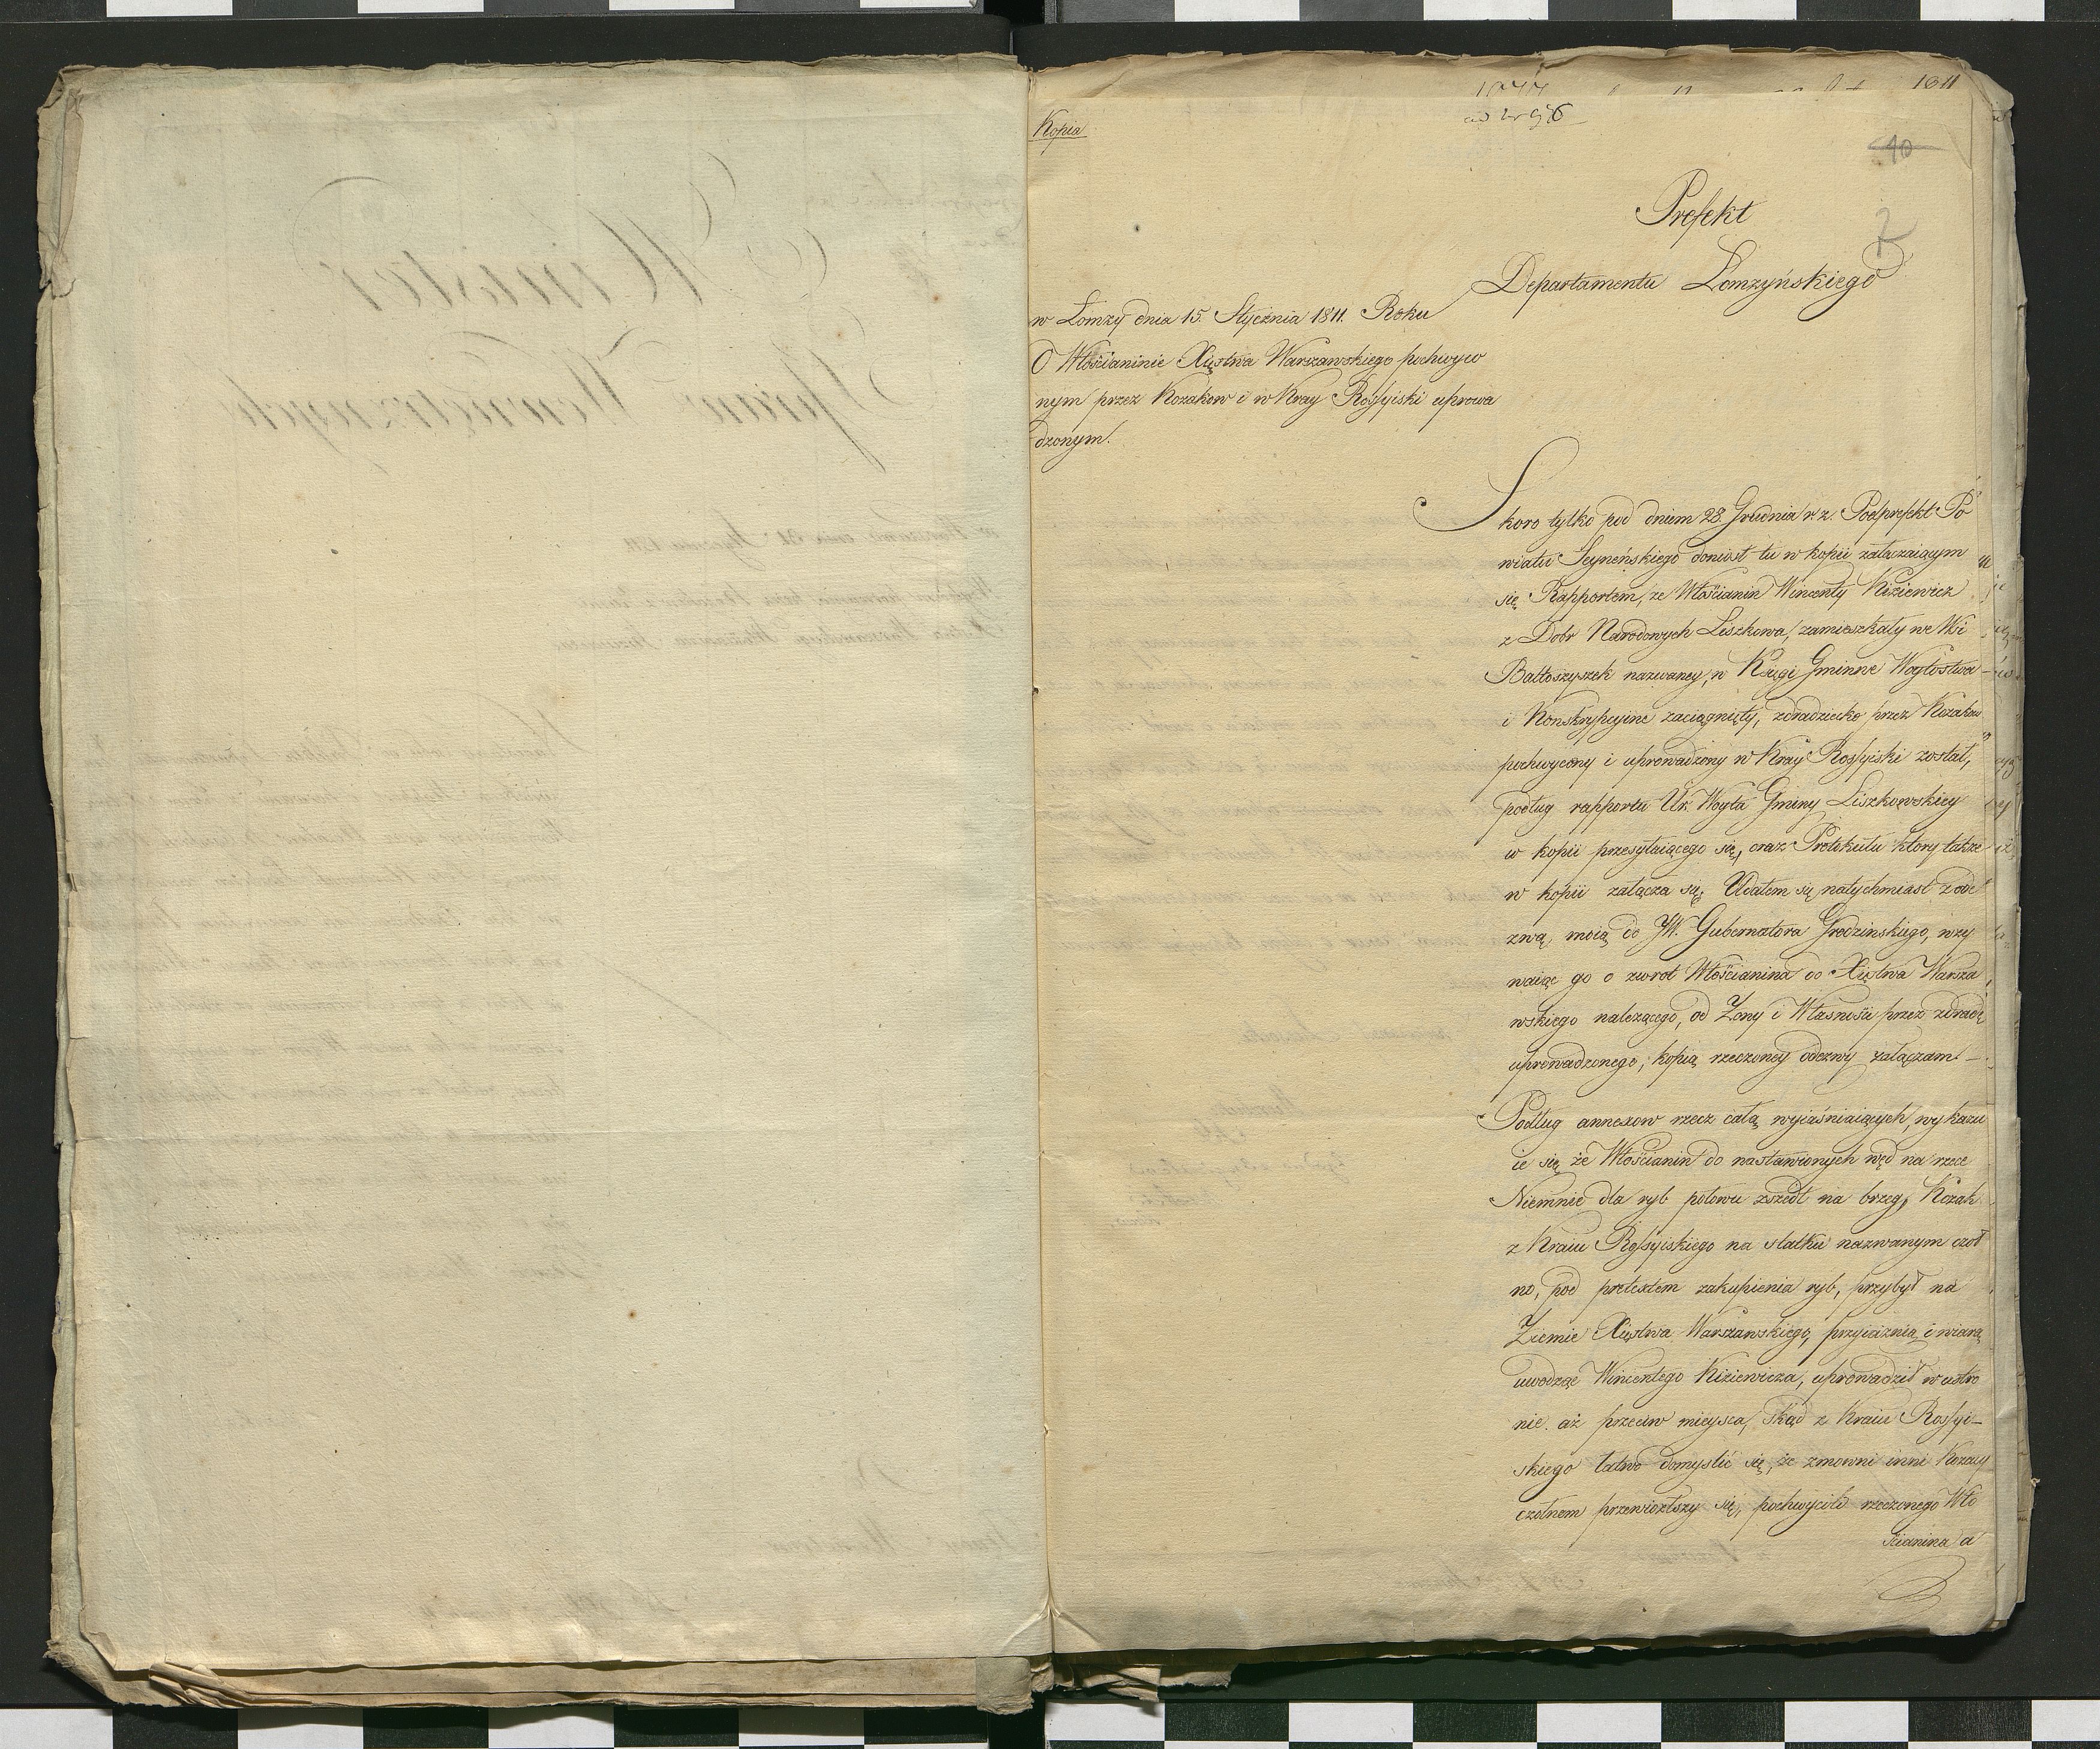 Kopia
1811
10
Prefekt
Departamentu Łomzyńskiego
w Łomzy dnia 15. Stycznia 1811. Roku
O Włościaninie Xięstwa Warszawskiego pochwyco
nym przez Kozakow i w Kray Rossyiski uprowa
dzonym.
Skoro tylko pod dniem 28. Grudnia r. z. Podprefekt Po
wiatu Seyneńskiego doniosł tu w kopii załączaiącym
się Rapportem, ze Włościanin Wincenty Kiziewicz
z Dobr Narodowych Liszkowa, zamieszkały we Wsi
Baltoszyszek nazwaney, w Księgi Gminne Woytostwa
i Konskrypcyine zaciągnięty, zdradziecko przez Kozakow
pochwycony i uprowadzony w Kray Rossyiski został,
podług rapportu Ur. Woyta Gminy Liszkowskiey
w kopii przesyłaiącego się, oraz Protokułu ktory także
w kopii załącza się; Udałem się natychmiast z ode
zwą moią do JW. Gubernatora Grodzinskiego, wzy
waiąc go o zwrot Włościanina do Xięstwa Warsza
wskiego nalezącego, od Zony i Własności przez zdradę
uprowadzonego; kopią rzeczoney odezwy załączam. —
Podług annexow rzecz całą wyiaśniaiących, wykazu
ie się że Włościanin do nastawionych węd na rzece
Niemnie dla ryb połowu zszedł na brzeg, Kozak
z Kraiu Rossyiskiego na statku nazwanym czoł
no, pod pretextem zakupienia ryb, przybył na
Ziemie Xięstwa Warszawskiego, przyiaznią i wiarą
uwodząc Wincentego Kiziewicza, uprowadził w ustro
nie aż przeciw mieysca, skąd z Kraiu Rossyi-
skiego łatwo domyslić się, że zmowni inni Kozacy
czołnem przewiozłszy się, pochwycili rzeczonego Wło
ścianina a